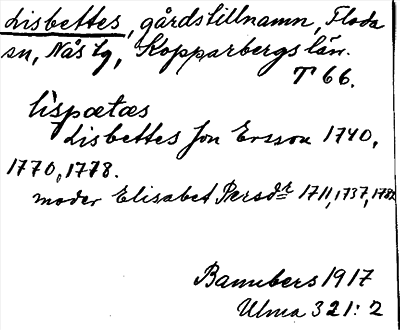 Lisbettes, gårdstillnamn, Floda
sn, Nås tg, Kopparbergs län.
T 66.
lispætæs
Lisbettes Jon Ersson 1740,
1770, 1778.
moder Elisabet Persdr 1711, 1737, 1782
Bannbers 1917
Ulma 321: 2